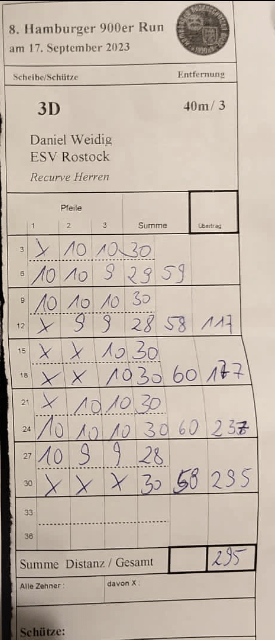 8. Hamburger 900er Run
am 17. September 2023
Scheibe/Schütze Entfernung
3D 40m / 3
Daniel Weidig
ESV Rostock
Recurve Herren
Pfeile
1 2 3 Summe Übertrag
3 X 10 10 30
6 10 10 9 29 59
9 10 10 10 30
12 X 9 9 28 58 117
15 X X 10 30
18 X X 10 30 60 177
21 X 10 10 30
24 10 10 10 30 60 237
27 10 9 9 28
30 X X X 30 58 295
33
36
Summe Distanz / Gesamt 295
Alle Zehner: davon X:
Schütze: